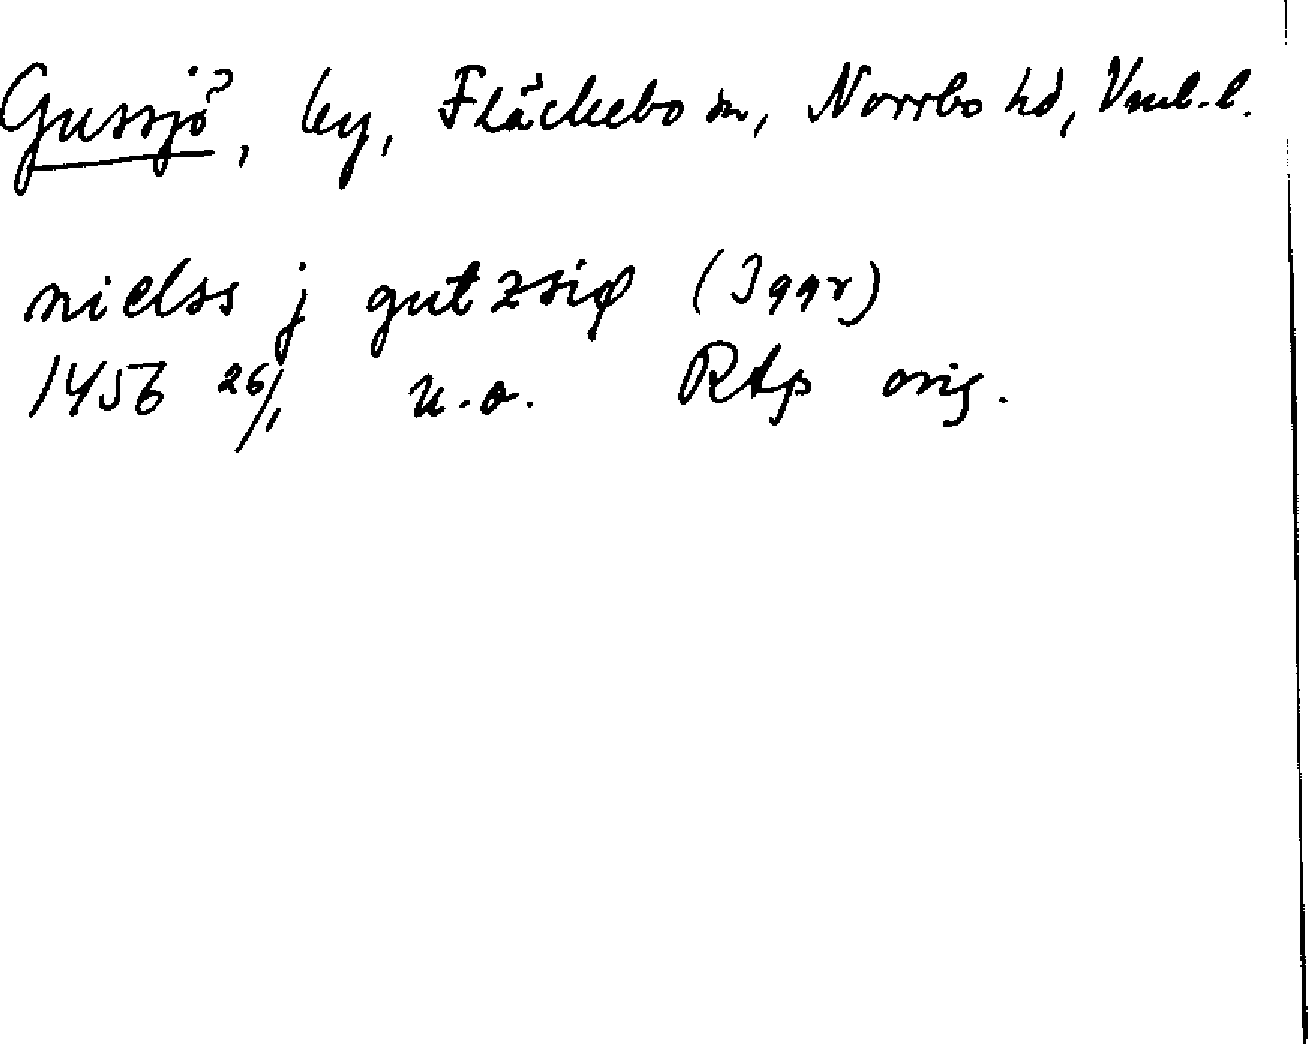 Gussjö, by, Fläckebo sn, Norrbo hd, Vml. l.
nielss j gutzsiø (Iggr)
1456 26/1 u.o. Rtp orig.